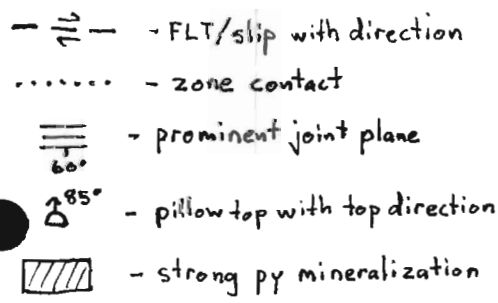 - FLT/slip with direction
- zone contact
- prominent joint plane
60°
85° - pillow top with top direction
- strong py mineralization